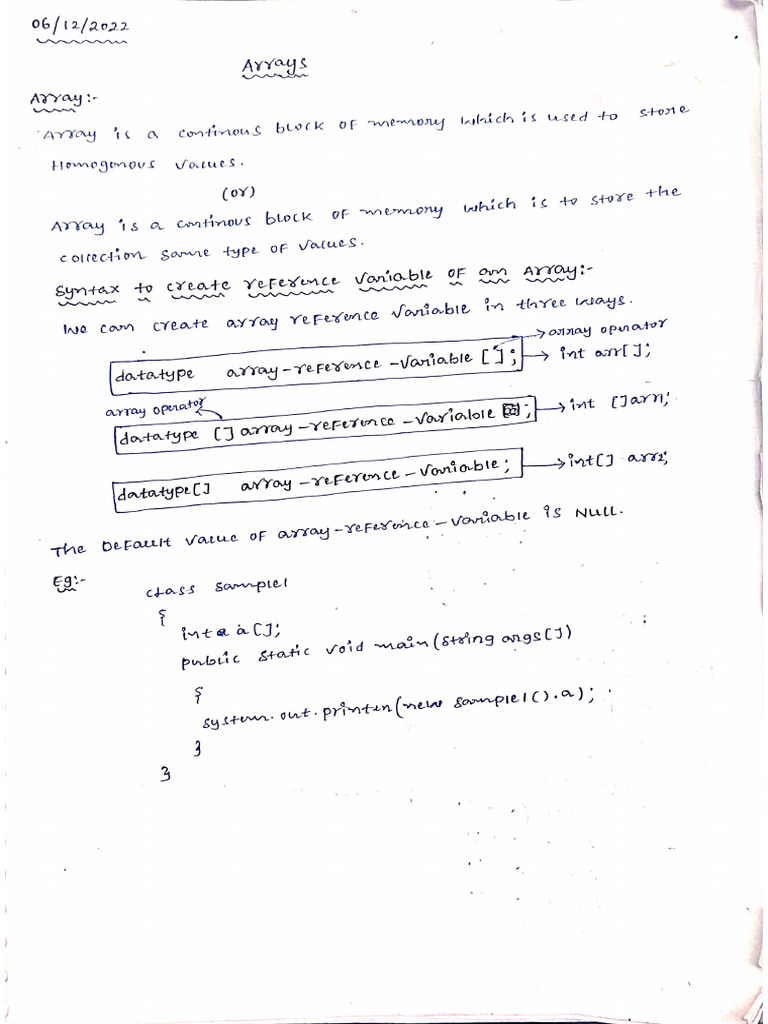 06/12/2022
Arrays
Array:-
Array is a continous block of memory which is used to store
Homogenous values.
(or)
Array is a continous block of memory which is to store the
collection same type of values.
Syntax to create reference variable of an Array:-
We can create array reference variable in three ways.
→array operator
datatype array-reference-variable []; → int arr[];
array operator
datatype [] array-reference-variable ; → int []arr1;
datatype[] array-reference-variable; → int[] arr2;
The Default value of array-reference-variable is NULL.
Eg:-
class Sample1
{
int a[];
public static void main(String args[])
{
System.out.println(new Sample1().a);
}
}